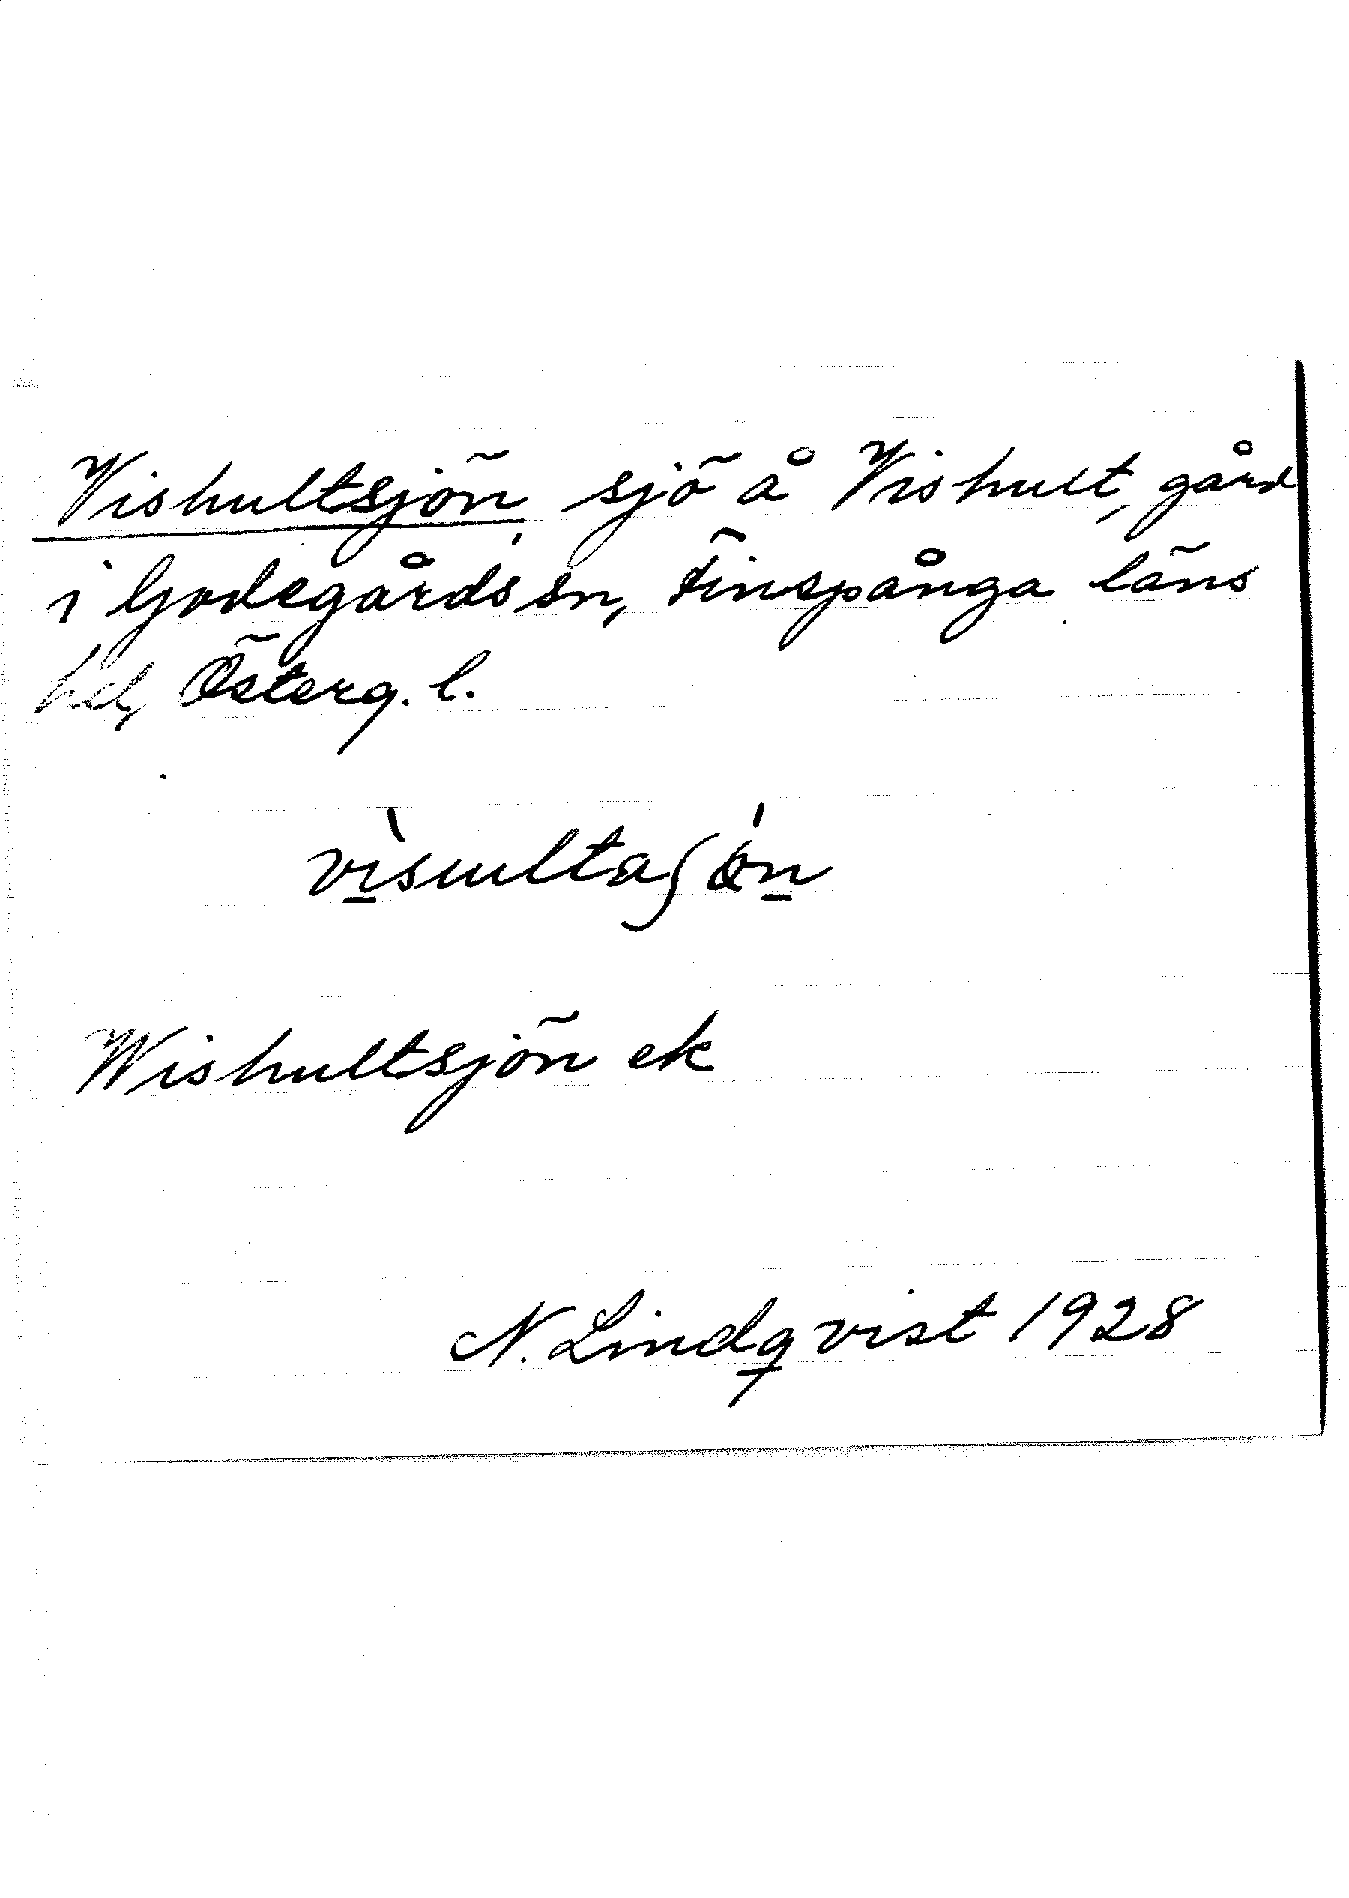 Vishultsjön sjö å Vishult, gård
i Godegårds sn, Finspånga läns
hd, Österg. l.
vìsulta∫ǿn
Wishultsjön ek
N. Lindqvist 1928